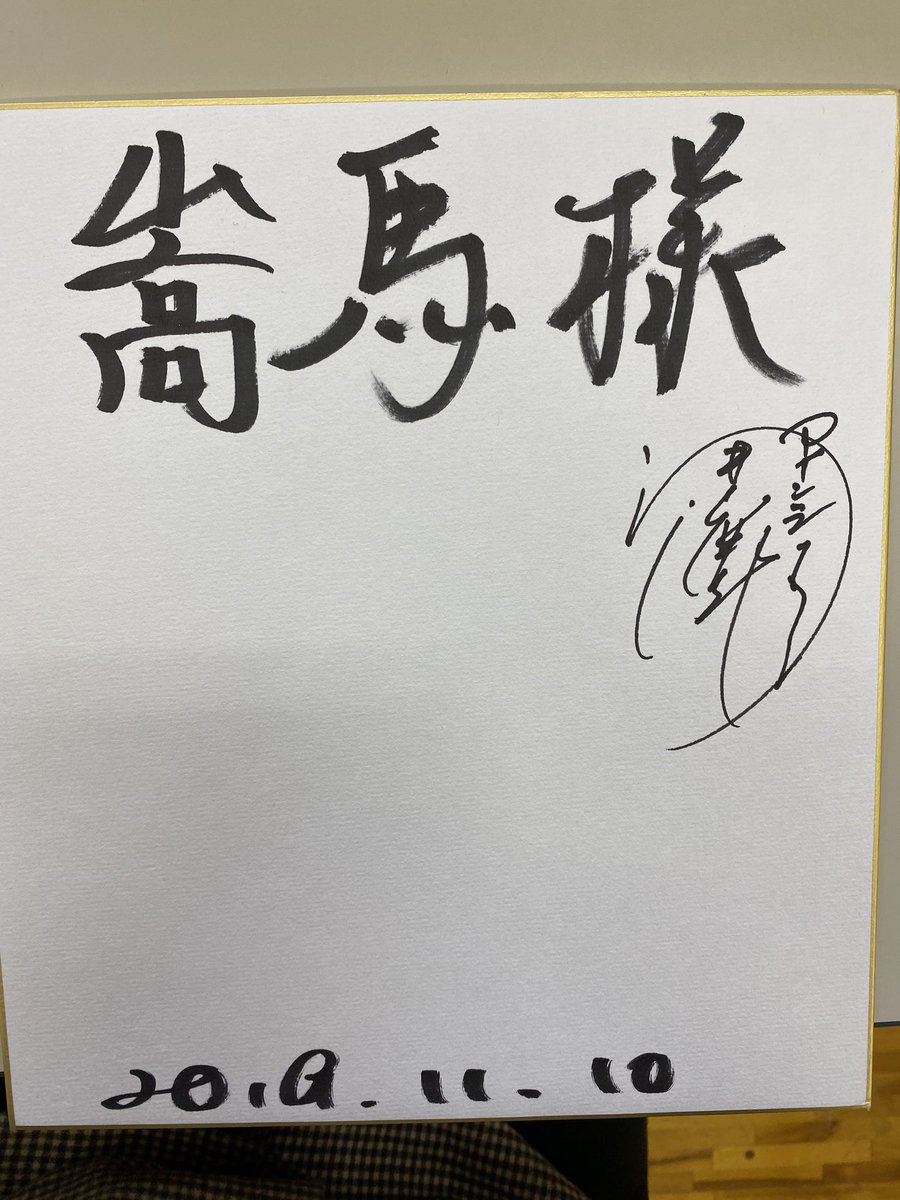 嵩馬様
2019.11.10